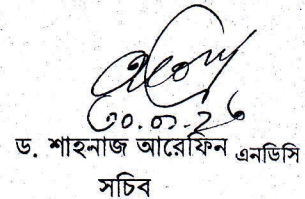 ৩০.০১.২৬
ড. শাহনাজ আরেফিন এনডিসি
সচিব